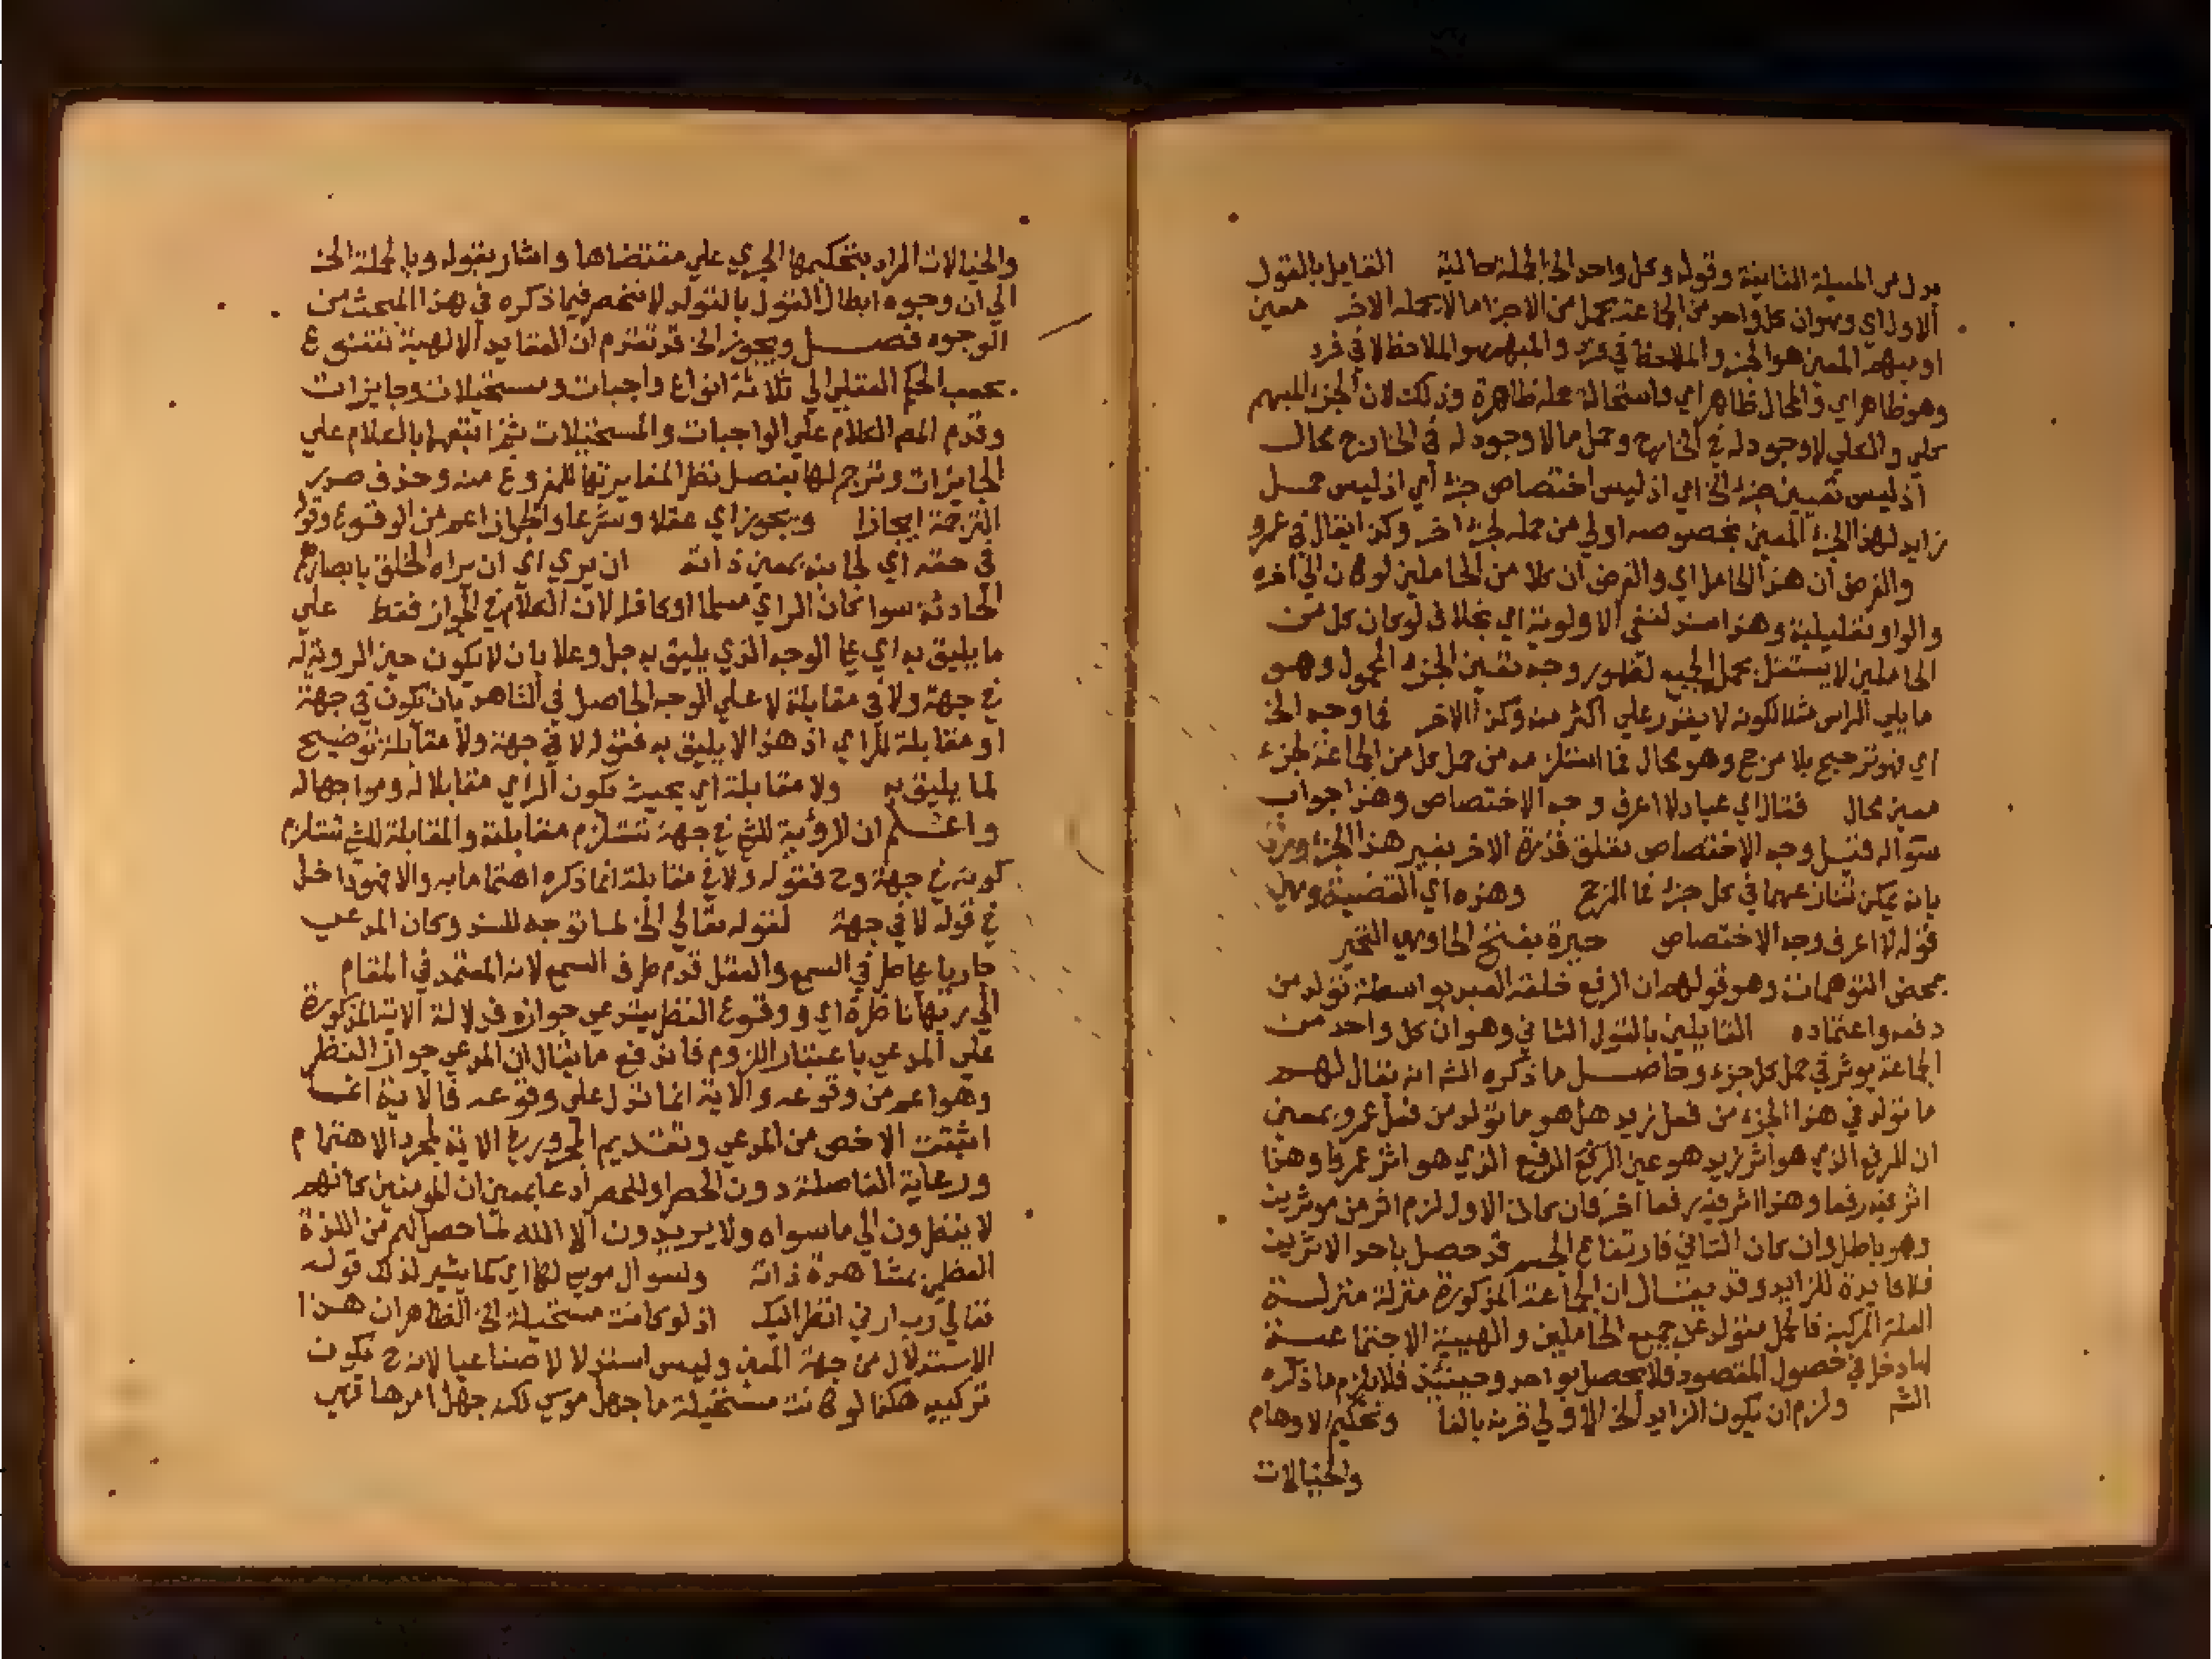 بدل من المسيلة الثانية وقوله وكل واحد الخ الجملة حالية القايل بالقول
الاول اي وهو ان كل واحد من الجاعة يحمل من الاجزا ما لا يحمله الاخر معين
او مبهم المعين هو الجزء الملاحظ في فرد والمبهم هو الملاحظ لا في فرد
وهو ظاهر اي والمحال ظاهر اي واستحالة حمله ظاهرة وذلك لان الجزء المبهم
كلي والكلي لا وجود له في الخارج وحمل ما لا وجود له في الخارج محال
اذ ليس تعيين جزء الخ اي اذ ليس اختصاص جزء اي اذ ليس حمل
زايد لهذا الجزء المعين بخصوصه اولي من حمله لجزء اخر وكذا يقال في عمرو
والفرض ان هذا الحامل اي والفرض ان كلا من الحاملين لو كان الي اخره
والواو تعليلية وهذا سند لنفي الاولوية اي بخلاف لو كان كل من
الحاملين لا يستقل بحمل الجميع لظهور وجه تعيين الجزء المحمول وهو
ما يلي الراس مثلا لكونه لا يقدر علي اكثر منه وكذا الاخر فما وجه الخ
اي فهو ترجيح بلا مرجح وهو محال فما استلزمه من حمل كل من الجاعة لجزء
معين محال فقال اي عباد لا اعرف وجه الاختصاص وهذا جواب
سواله فقيل وجه الاختصاص تعلق قدرة الاخر بغير هذا الجزء ورد
بانه يمكن تنازعهما في كل جزء فما المرجح وهذه اي القضية وهي
قوله لا اعرف وجه الاختصاص حيرة بفتح الحا وهي التحير
بمحض التوهمات وهو قولهم ان الرفع خلقه العبد بواسطة تولد من
دفعه واعتماده القايلين بالقول الثاني وهو ان كل واحد من
الجاعة يوثر في حمل كل جزء وحاصل ما ذكره الش انه يقال لهم
ما تولد في هذا الجزء من فعل زيد هل هو ما تولد من فعل عمرو بمعين
ان للرفع الذي هو اثر زيد هو عين الرفع الذي هو اثر عمرو او هذا
اثر فيه رفعا وهذا اثر فيه رفعا اخر فان كان الاول لزم اثر من موثرين
وهو باطل وان كان الثاني فارتفاع الجسم قد حصل باحد الاثرين
فلا فايدة للزايد وقد يقال ان الجاعة المذكورة منزلة منزلة
العلة المركبة فالحمل متولد عن جميع الحاملين والهيية الاجتماعية
لها دخل في حصول المقصود فلا يحصل بواحد وحينئذ فلا يلزم ما ذكره
الش ولزم ان يكون الزايد الخ الاولي قرنه بالفا وتحكيم الاوهام
والخيالات
والخيالات المراد بتحكيمها الجري علي مقتضاها واشار بقوله وبالجملة الخ
الي ان وجوه ابطال القول بالتولد لا تنحصر فيما ذكره في هذا المبحث من
الوجوه فصل ويجوز الخ قد تقدم ان العقايد الالهية تتنوع
بحسب الحكم العقلي الي ثلاثة انواع واجبات ومستحيلات وجايزات
وقدم المص الكلام علي الواجبات والمستحيلات ثم اتبعها بالكلام علي
الجايزات وترجم لها بفصل نظرا لمغايرتها للمفروغ منه وحذف صدر
الترجمة ايجازا ويجوز اي عقلا وشرعا والجواز اعم من الوقوع وقوله
في حقه اي لجانبه بمعين ذاته ان يري اي ان يراه الخلق بابصارهم
الحادثة سوا كان الراي مسلما او كافرا لان الكلام في الجواز فقط علي
ما يليق به اي علي الوجه الذي يليق به جل وعلا بان لا يكون حين الروية له
في جهة ولا في مقابلة لا علي الوجه الحاصل في الشاهد بان يكون في جهة
او مقابلة للراي اذ هذا لا يليق به فقوله لا في جهة ولا مقابلة توضيح
لما يليق به ولا مقابلة اي بحيث يكون الراي مقابلا له ومواجها له
واعلم ان الرؤية للشي في جهة تستلزم مقابلته والمقابلة للشي تستلزم
كونه في جهة وح فقوله ولا في مقابلة انما ذكره اهتماما به والا فهو داخل
في قوله لا في جهة لقوله تعالي الخ لما توجه للسند وكان المدعي
جاريا علي طرفي السمع والعقل قدم طرف السمع لانه المعتمد في المقام
الي ربها ناظرة اي ووقوع النظر يستدعي جوازه فدلالة الاية المذكورة
علي المدعي باعتبار اللزوم فاندفع ما يقال ان المدعي جواز النظر
وهو اعم من وقوعه والاية انما تدل علي وقوعه فالاية انما
اثبتت الاخص من المدعي وتقديم المجرور في الاية لمجرد الاهتمام
ورعاية الفاصلة دون الحصر او للحصر ادعا بمعين ان المومنين كانهم
لا ينظرون الي ما سواه ولا يريدون الا الله لما حصل لهم من اللذة
العظمي بمشاهدة ذاته ولسوال موسي لها اي كما يشير لذلك قوله
تعالي رب ارني انظر اليك اذ لو كانت مستحيلة الخ الظاهر ان هذا
الاستدلال من جهة المعين وليس استدلالا صناعيا لانه ح يكون
تركيبه هكذا لو كانت مستحيلة ما جهل موسي لكنه جهل امرها فهي